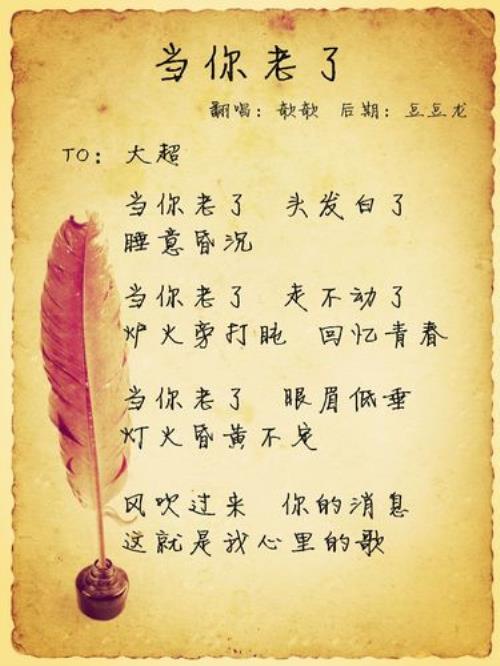 当你老了
翻唱：歆歆 后期：豆豆龙
TO：大超
当你老了 头发白了
睡意昏沉
当你老了 走不动了
炉火旁打盹 回忆青春
当你老了 眼眉低垂
灯火昏黄不定
风吹过来 你的消息
这就是我心里的歌